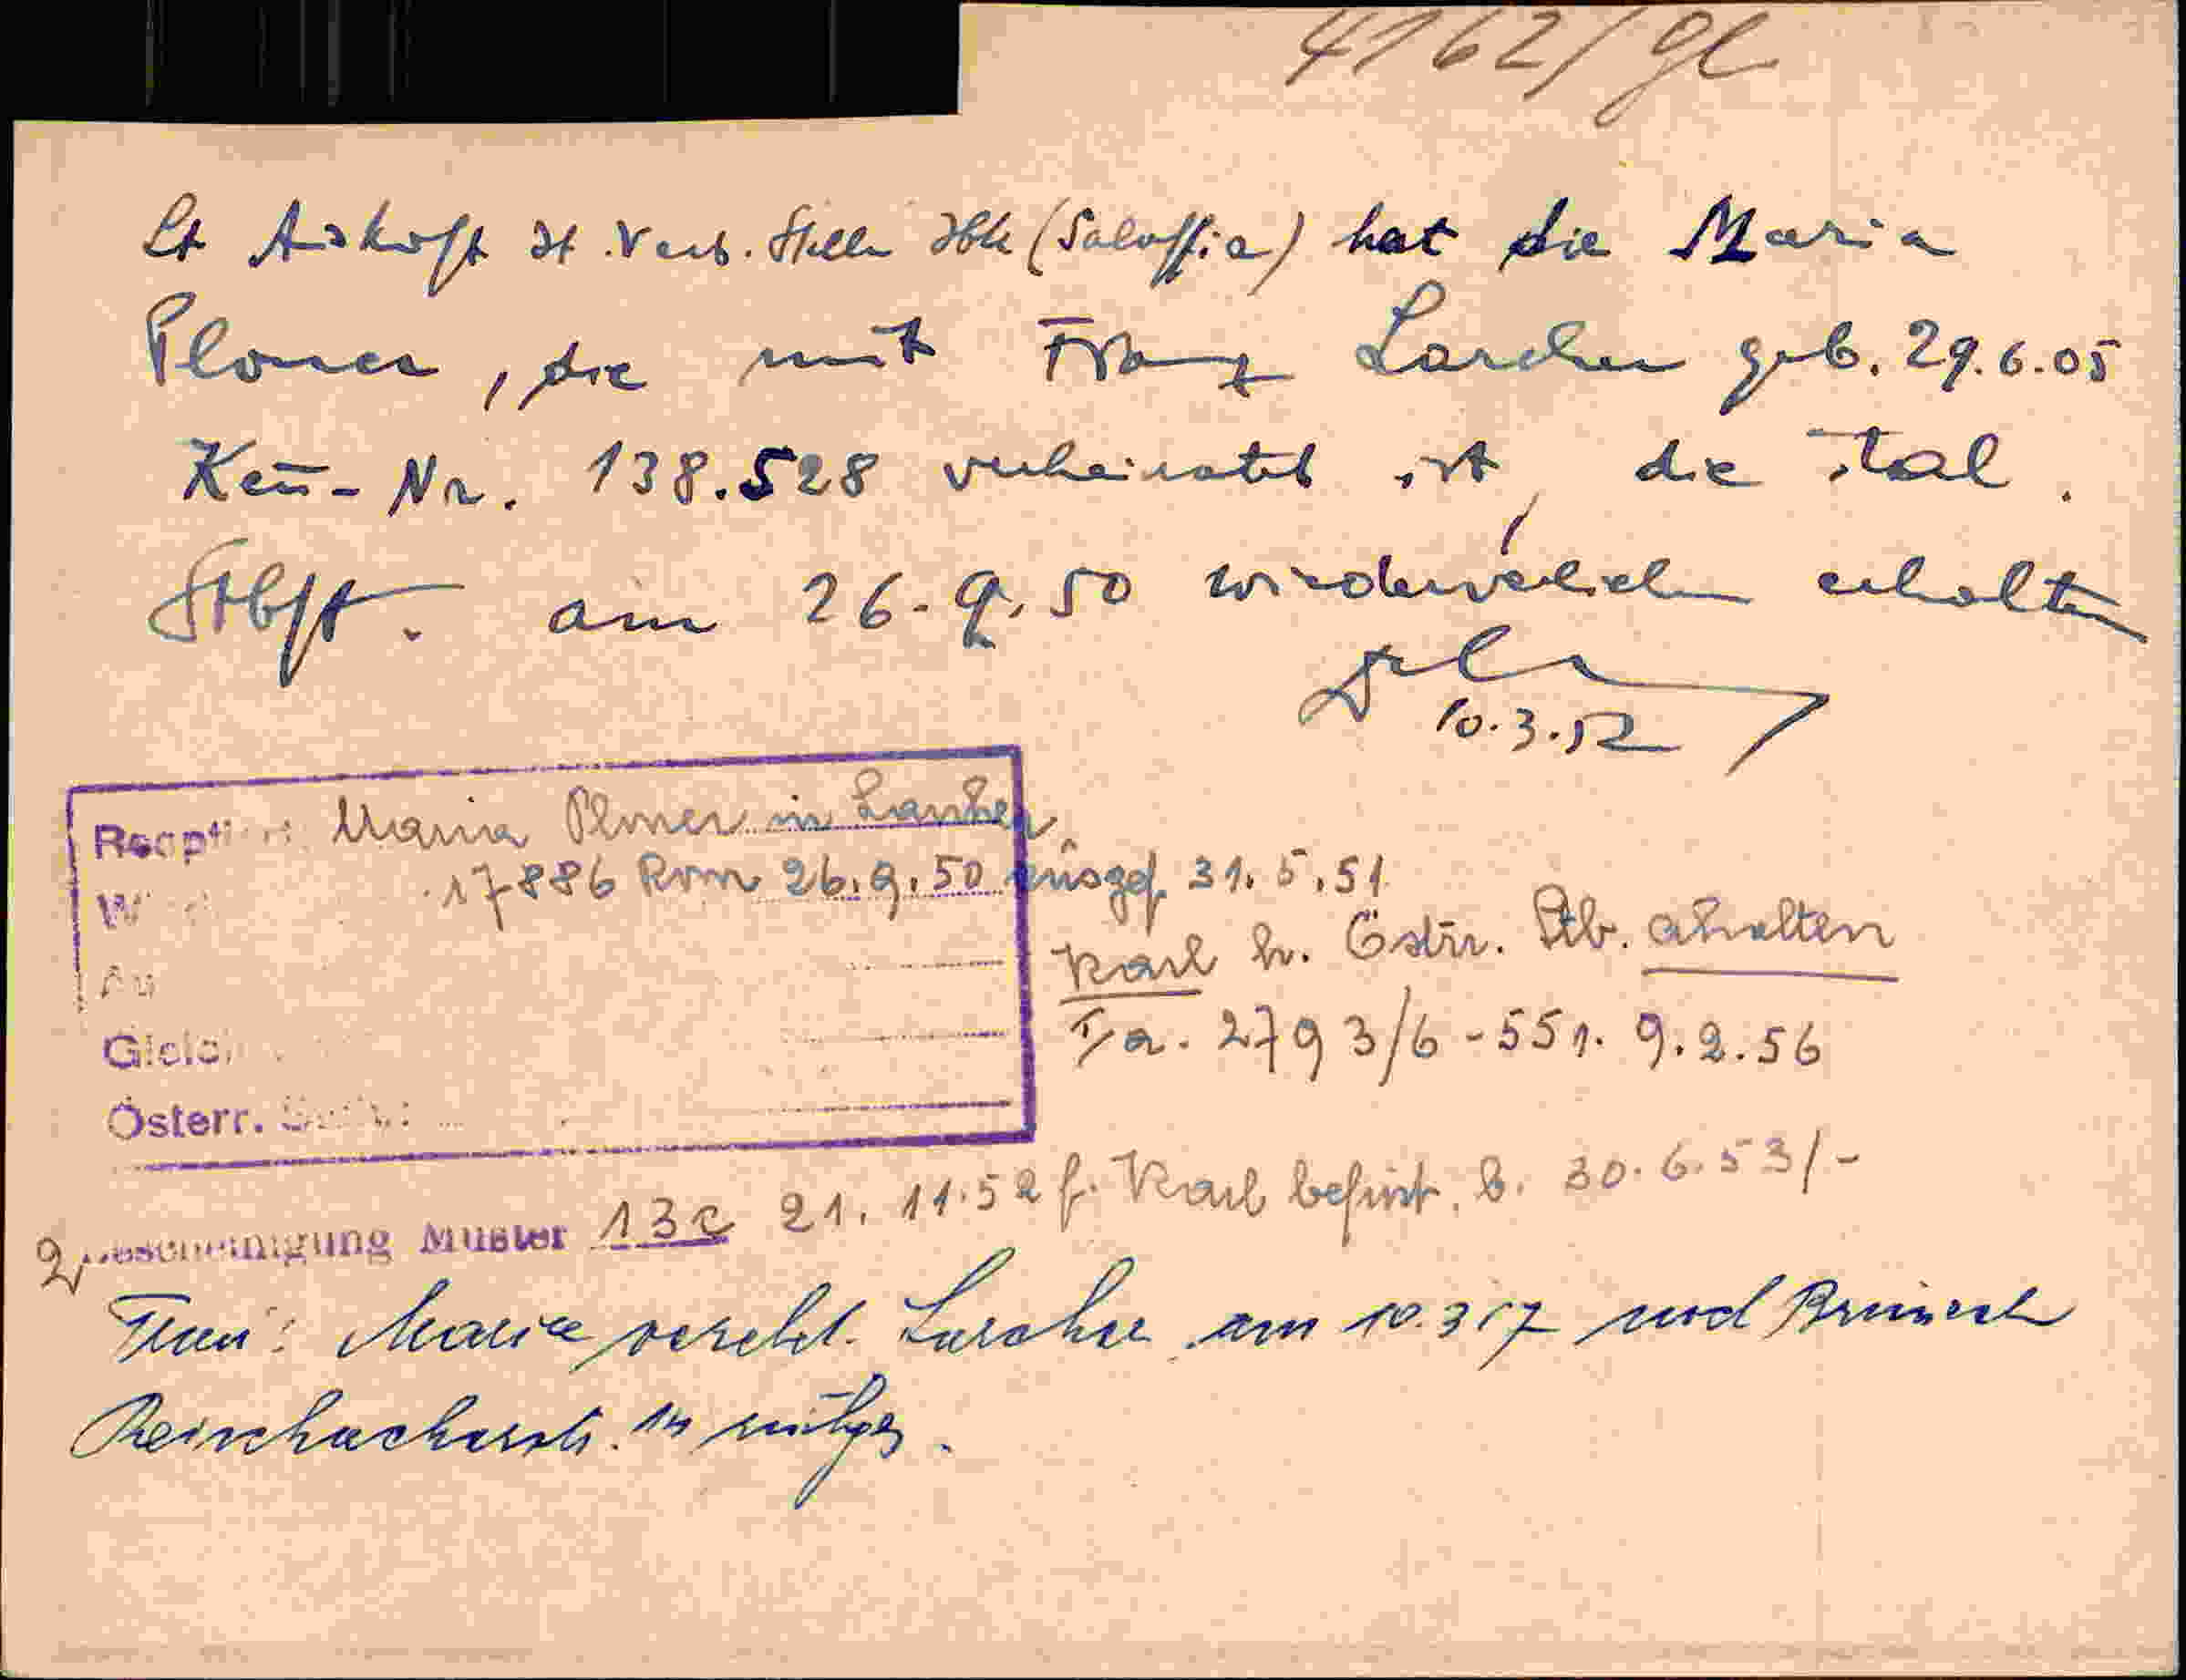 4162/gl
Lt Auskft It. Verb. Stelle Ibk (Saloffia) hat die Maria
Ploner, die mit Franz Larcher geb. 29.6.05
Ken̄-Nr. 138.528 verheiratet ist, die ital.
Stbft. am 26.9.50 wiederverliehen erhalten
10.3.52
Reopt Maria Ploner in Larcher
17886 Rom 26.9.50 ausgef. 31.5.51
Karl h. Östrr. Stb. erhalten
I/a. 2793/6-55 v. 9.2.56
Österr.
Bescheinigung Muster 13c 21.11.52 f. Karl befrist. b. 30.6.53/-
Frau: Maria verehl. Larcher am 10.3.57 nach Bruneck
Reischacherstr. 14